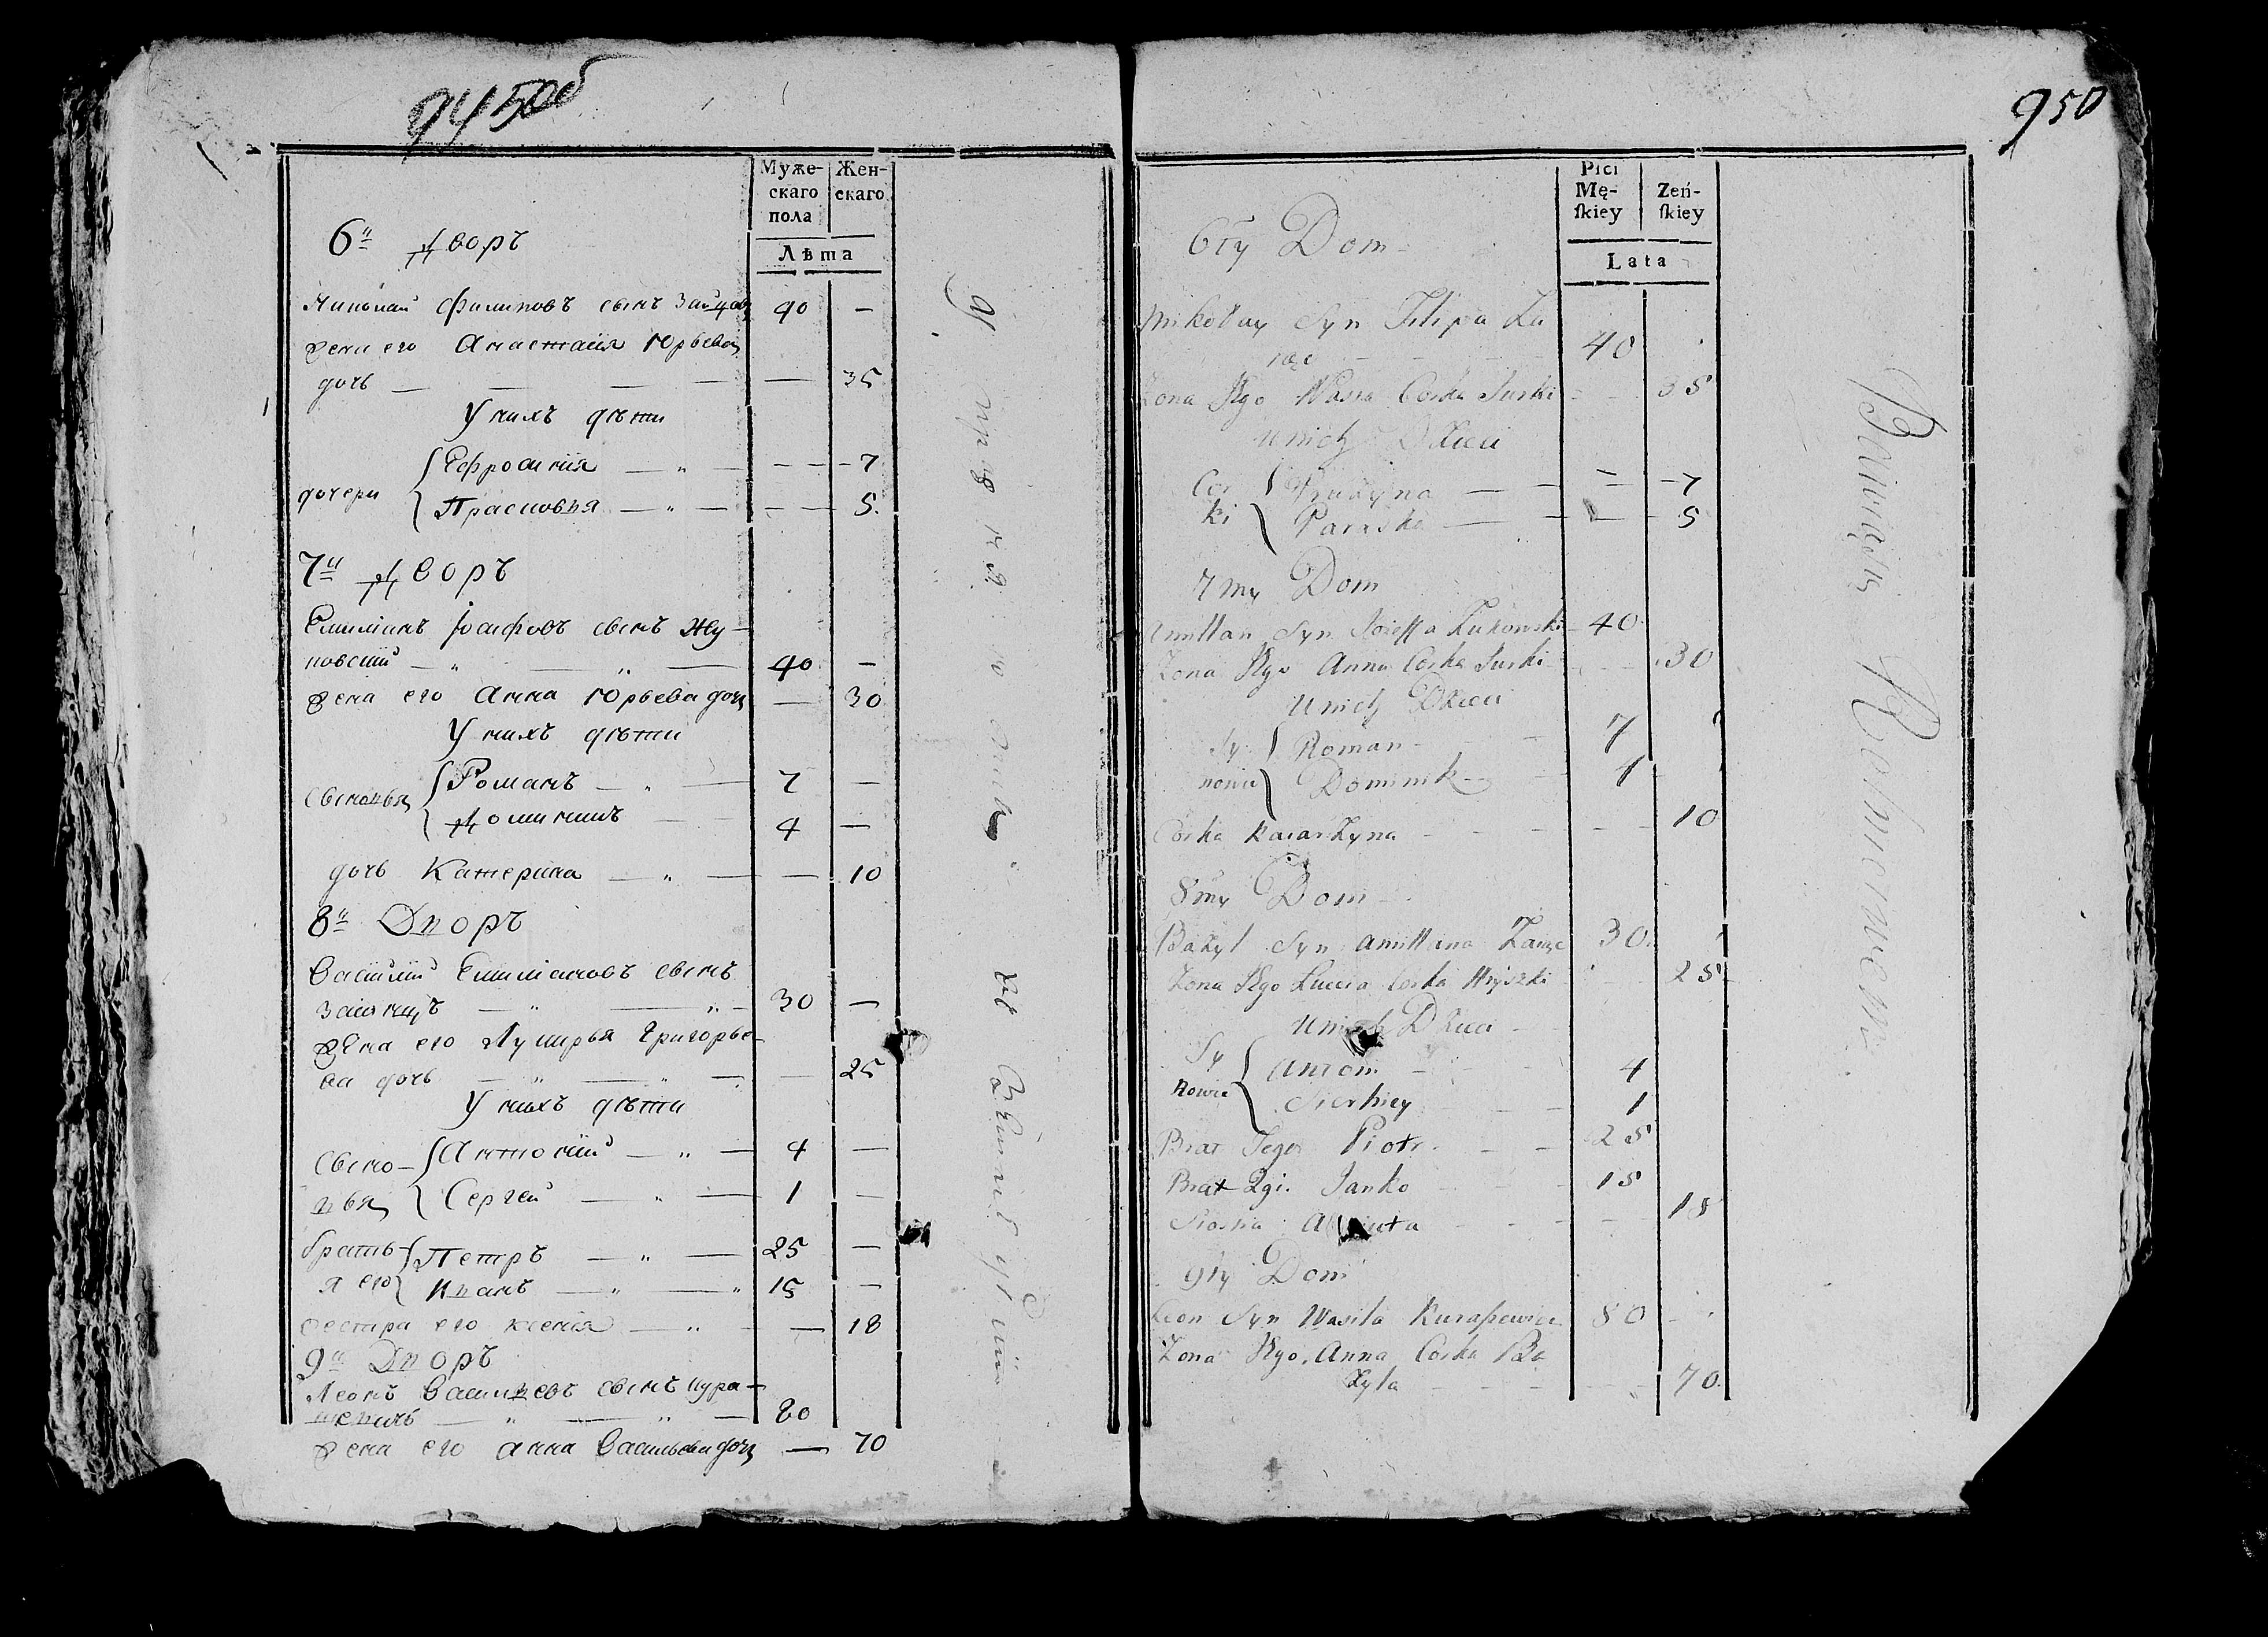 9450об
Муже-
скаго
пола
Жен-
скаго
Лѣта
6й Дворъ
Николай Филиповъ сынъ Заяцъ 40 —
жена его Анастасiя Юрьева
дочь — — — — — 35
У нихъ дѣти
дочери
Ефросинiя — „ — — — 7
Прасковья — „ — — — 5.
7й Дворъ
Емилiянъ Iосифовъ сынъ Жу-
ковскiй — „ — „ — 40 —
жена его Анна Юрьева дочь — 30
У нихъ дѣти
сыновья
Романъ — „ — 7 —
Доминикъ — — 4 —
дочь Катерина — „ — — 10
8й Дворъ
Василiй Емилiановъ сынъ
Заянцъ — „ — „ — 30 —
жена его Лукирья Григорье-
ва дочь — „ — „ — — 25
У нихъ дѣти
сыно-
вья
Антонiй — „ — 4 —
Сергей — „ — 1 —
брать-
я его
Петръ — „ — 25 —
Иванъ — „ — „ 15 —
сестра его Ксенiя — „ — — 18
9й Дворъ
Леонъ Васильевъ сынъ Кура-
шевичъ — „ — „ — 80
жена его Анна Васильева дочь — 70
950
Płci
Mę-
ſkiey
Zeń-
ſkiey
Lata
6ty Dom
Mikołay Syn Filipa Za
iąc 40
Zona Jego Nasta Corka Jurki 35
U nich Dzieci
Cor
ki
Fruzyna — — — 7
Paraska — — — 5
7my Dom
Amillan Syn Jozeffa Zukowski 40
Zona Jego Anna Corka Jurki 30
U nich Dzieci
Sy
nowie
Roman 7
Dominik 4
Corka Katarzyna 10
8my Dom
Bazyl Syn Amillana Zaiąc 30
Zona Jego Lucia Corka Hryszki 25
U nich Dzieci
Sy
nowie
Antoni 4
Sierhiey 1
Brat Jego Piotr 25
Brat 2gi. Janko 15
Siostra 18
9ty Dom
Leon Syn Wasila Kuraszewicz 80
Zona Jego Anna Corka Ba
zyla 70.